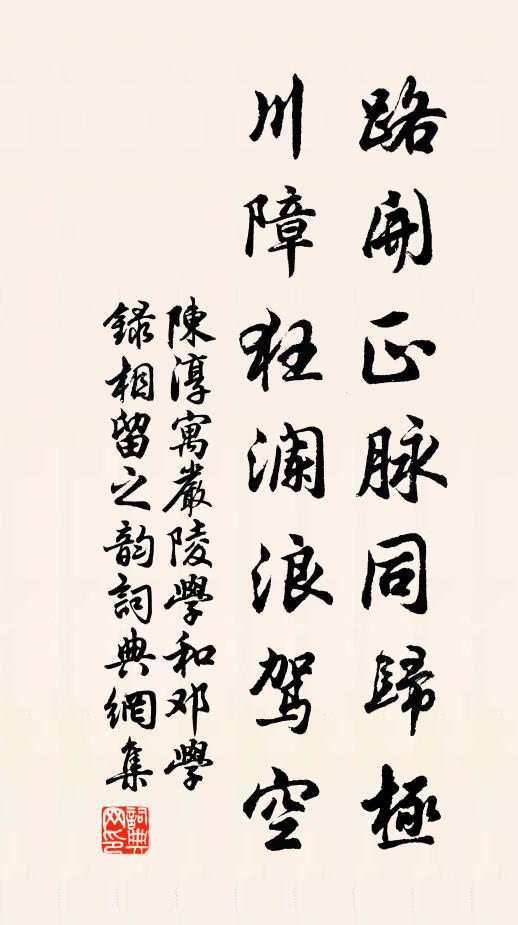 路開正脉同歸極
川障狂瀾浪駕空
陳淳寓嚴陵學和邓學
録相留之韵詞典網集
詞典网印